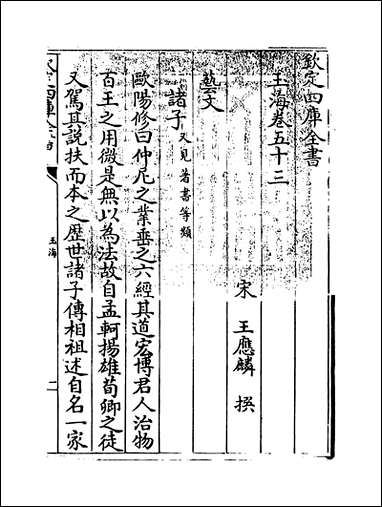 欽定四庫全書
玉海卷五十三
宋 王應麟 撰
藝文
諸子又見著書等類
歐陽修曰仲尼之業垂之六經其道宏博君人治物
百王之用微是無以為法故自孟軻揚雄荀卿之徒
又駕其說扶而本之歴世諸子傳相祖述自名一家
玉海
二